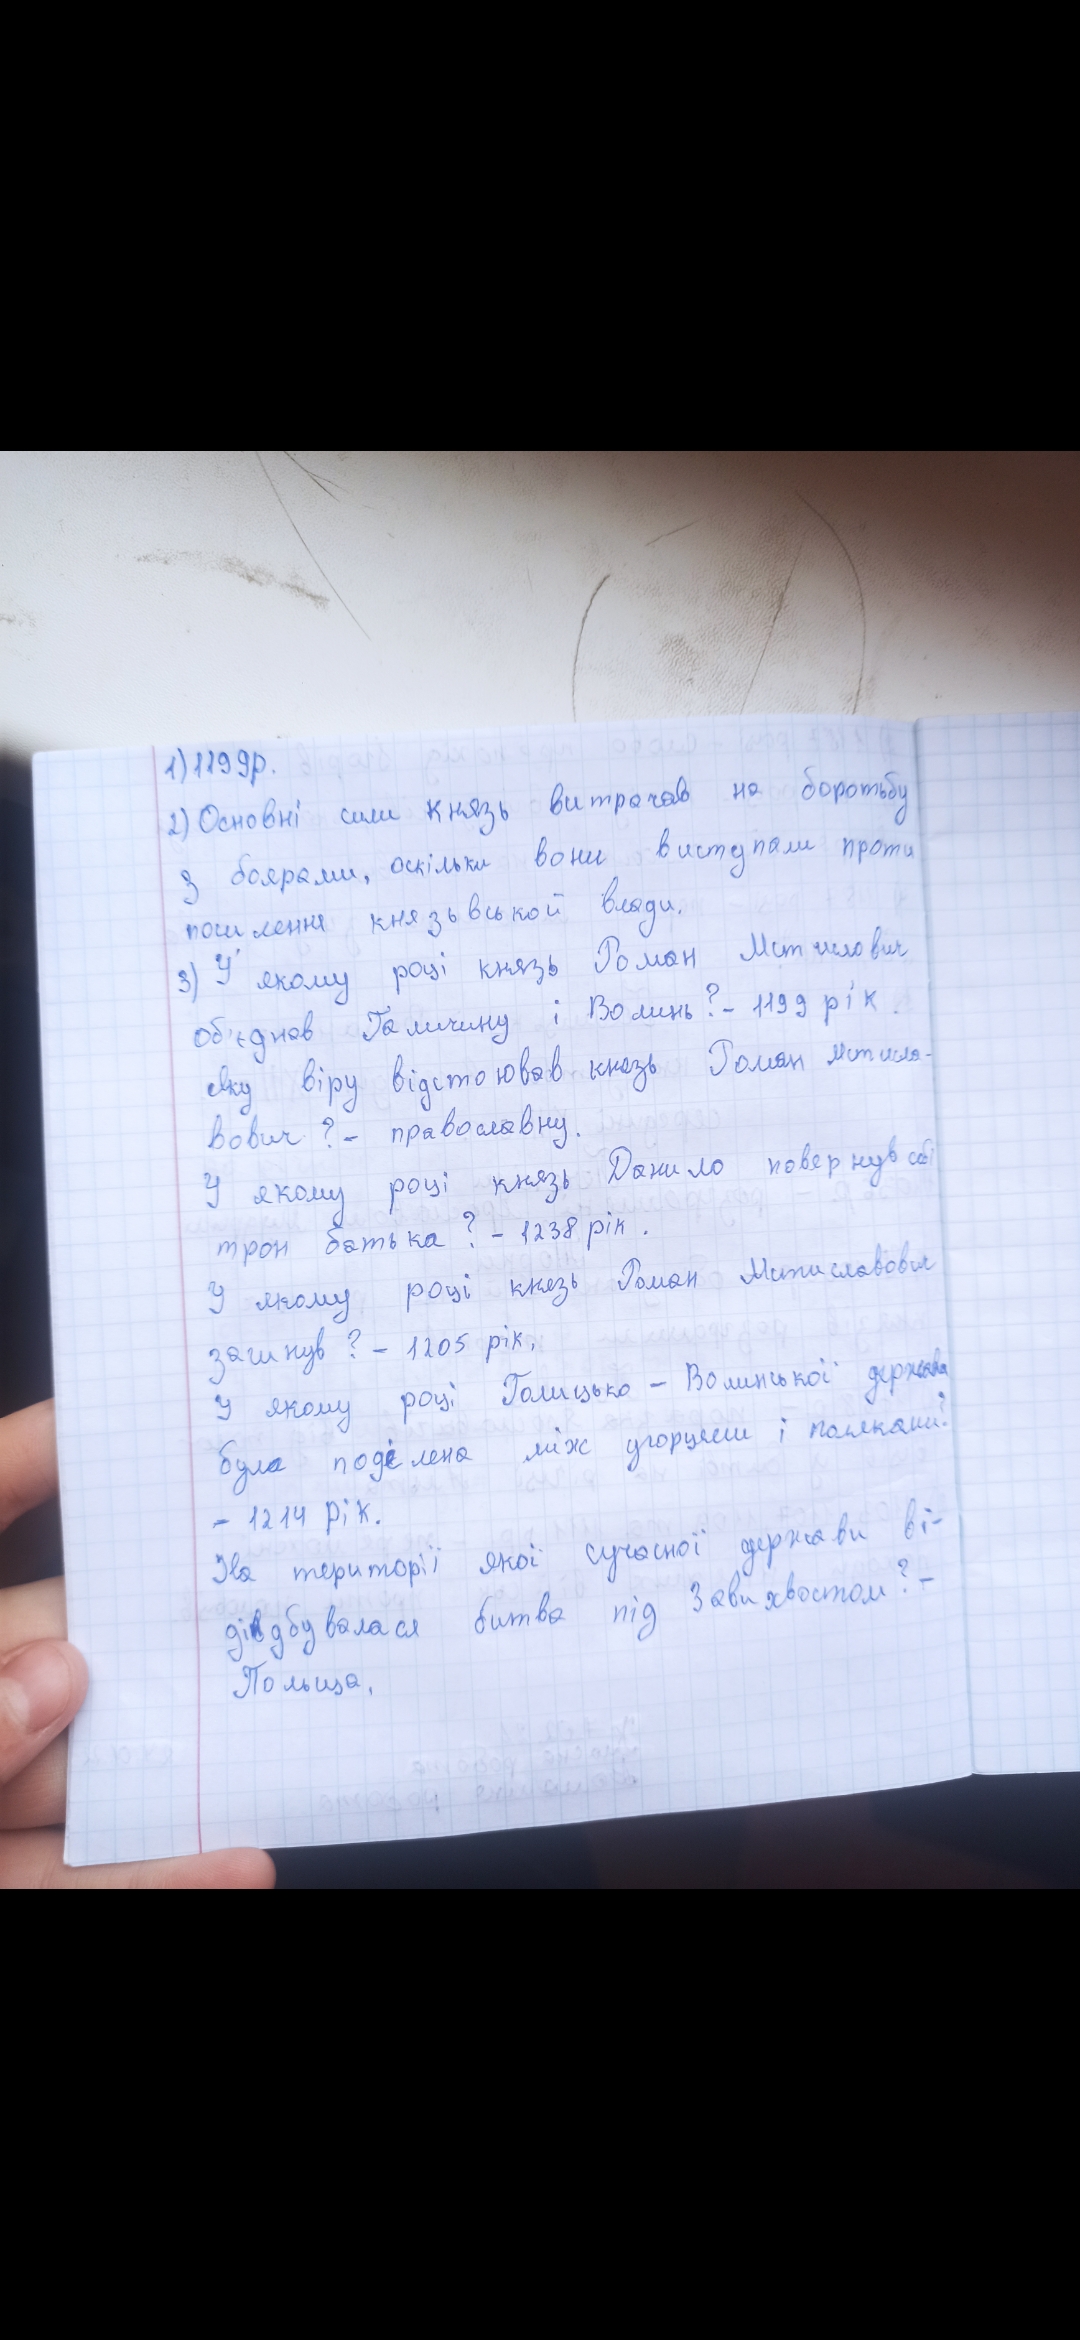 1) 1199р.
2) Основні сили князь витрачав на боротьбу
з боярами, оскільки вони виступали проти
посилення князьвської влади.
3) У якому році князь Роман Мстилович
об'єднав Галичину і Волинь? - 1199 рік.
Яку віру відстоював князь Роман Мстисла-
вович? - православну.
У якому році князь Данило повернув собі
трон батька? - 1238 рік.
У якому році князь Роман Мстиславович
загинув? - 1205 рік.
У якому році Голицько - Волинської держава
була поділена між угорцями і поляками?
- 1214 рік.
На території якої сучасної держави ві-
дбувалася битва під Завихвостом? -
Польща.